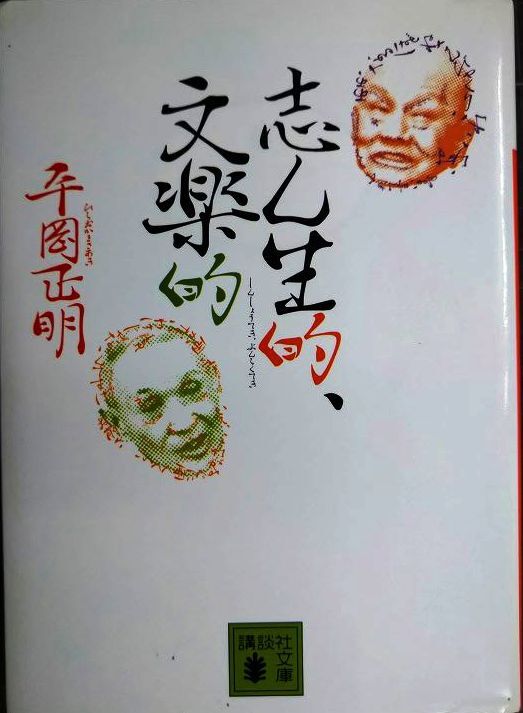 志ん生的、
文楽的
しんしょうてき、ぶんらくてき
平岡正明
ひらおかまさあき
講談社
文庫